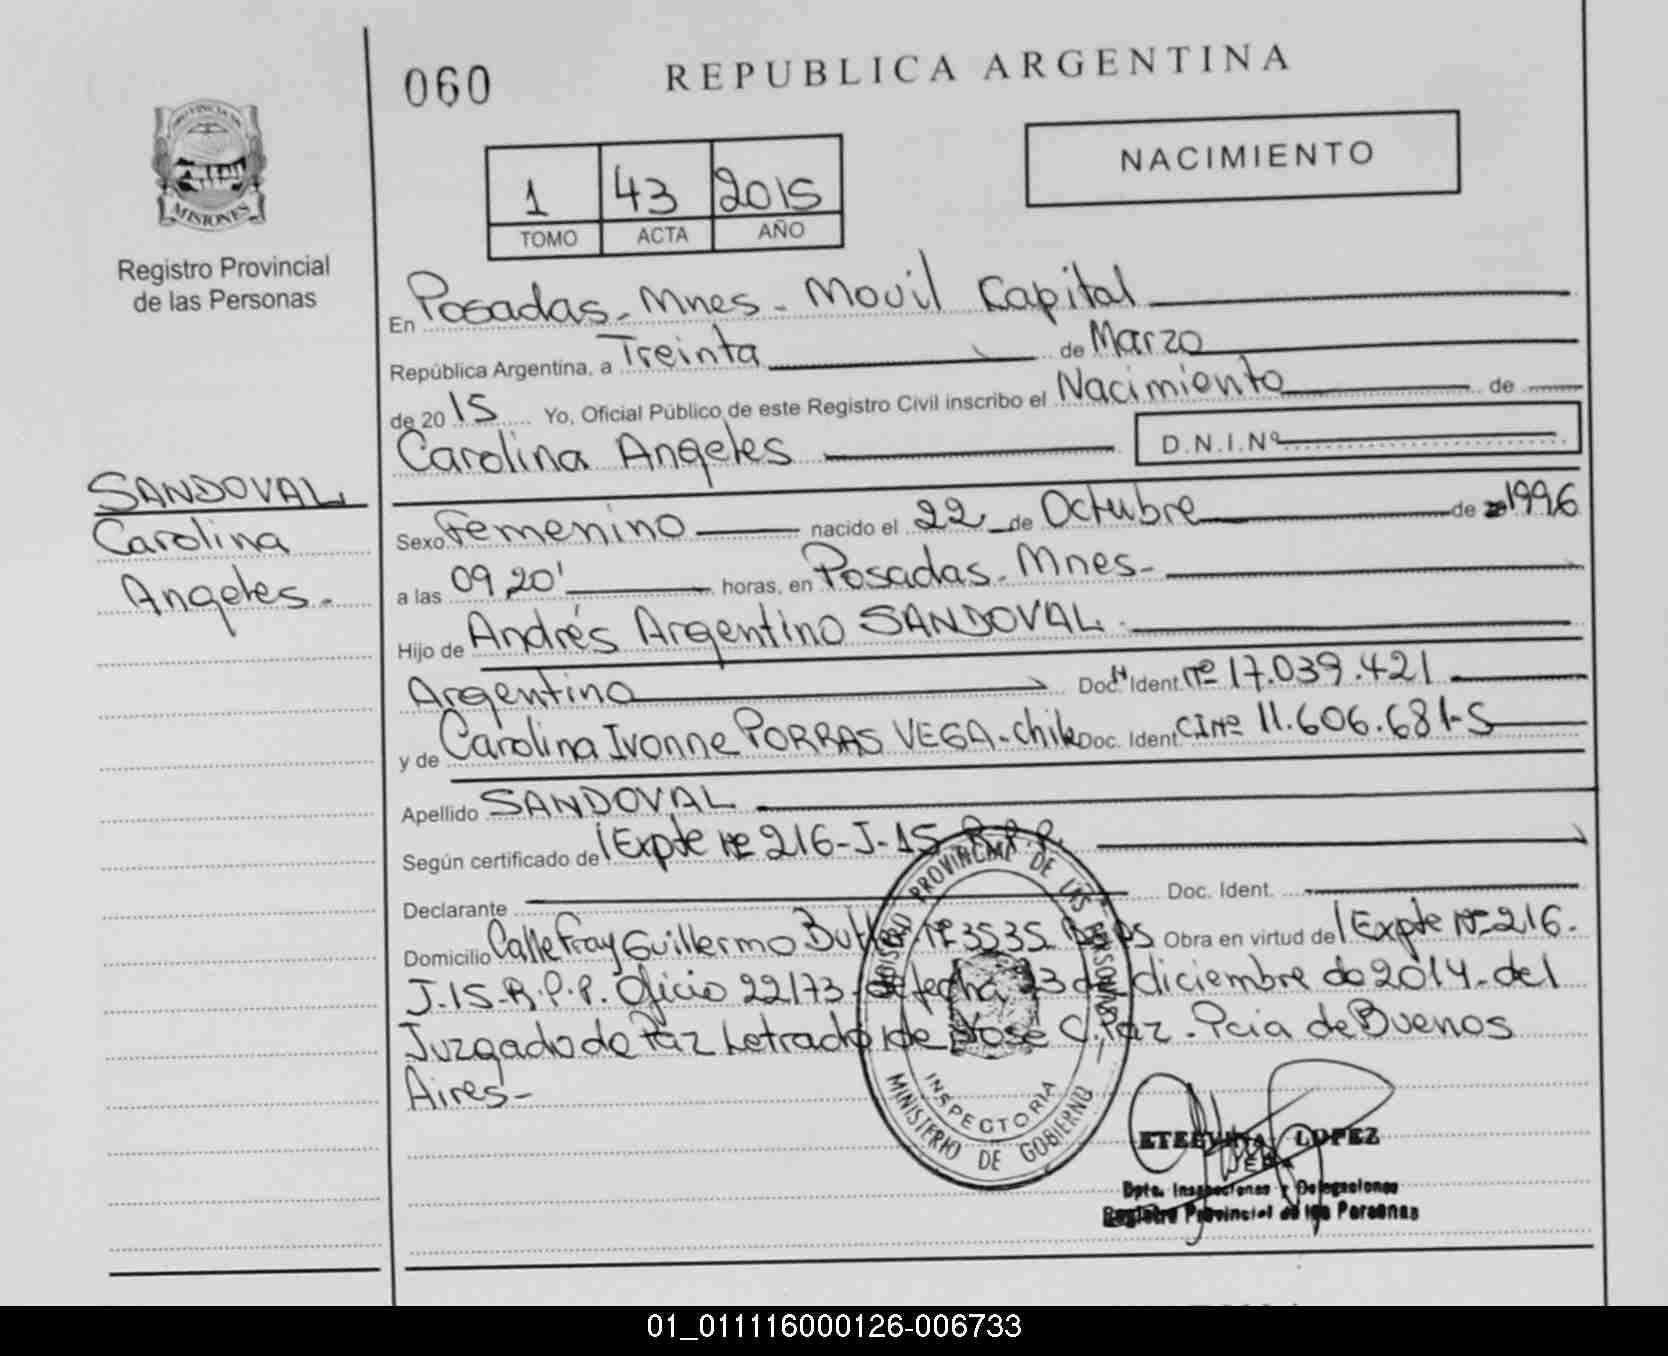 060
REPUBLICA ARGENTINA
PROVINCIA DE
MISIONES
Registro Provincial
de las Personas
NACIMIENTO
1 43 2015
TOMO ACTA AÑO
En Posadas - Mnes - Movil Capital
República Argentina, a Treinta de Marzo
de 2015 Yo, Oficial Público de este Registro Civil inscribo el Nacimiento de
Carolina Angeles D.N.I.Nº
SANDOVAL
Carolina
Angeles -
Sexo Femenino nacido el 22 de Octubre de 1996
a las 09,20' horas, en Posadas - Mnes -
Hijo de Andrés Argentino SANDOVAL
Argentino Doc. Ident. Nº 17.039.421
y de Carolina Ivonne PORRAS VEGA - chile Doc. Ident. CI Nº 11.606.681-S
Apellido SANDOVAL
Según certificado de Expte Nº 216-J-15 R.P.P.
Declarante Doc. Ident.
Domicilio Calle Fray Guillermo Nº 3535 Obra en virtud de Expte Nº 216-
J-15-R.P.P. Oficio 22173 de fecha de diciembre de 2014 - del
Juzgado de Paz Letrado de Jose C. Paz - Pcia de Buenos
Aires -
REGISTRO PROVINCIAL DE LAS PERSONAS
INSPECTORIA
MINISTERIO DE GOBIERNO
LOPEZ
JEFA
Dpto. Inspecciones y Delegaciones
Registro Provincial de las Personas
01_011116000126-006733